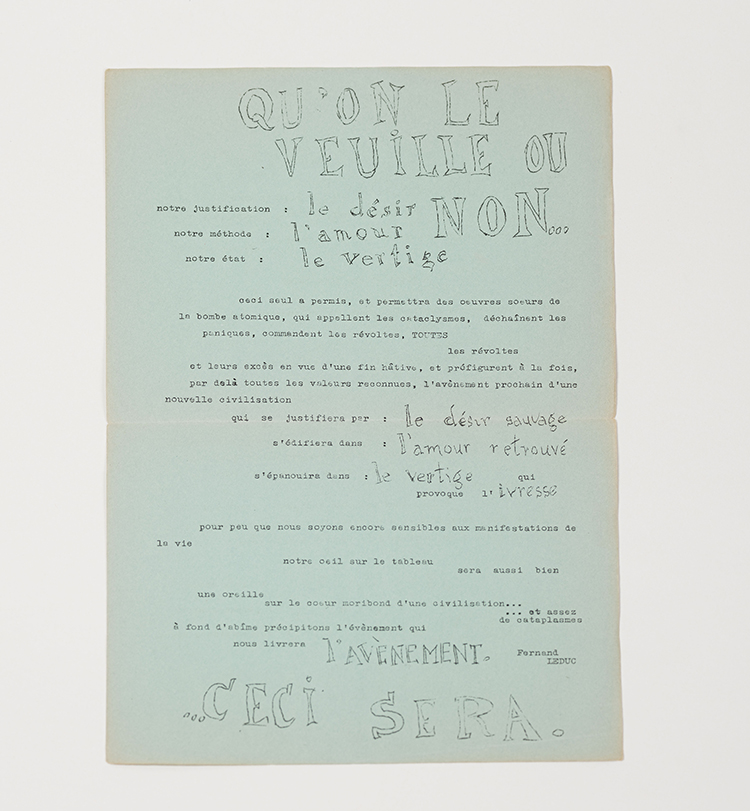 QU'ON LE
VEUILLE OU
NON...
notre justification : le désir
notre méthode : l'amour
notre état : le vertige
ceci seul a permis, et permettra des oeuvres soeurs de
la bombe atomique, qui appellent les cataclysmes, déchaînent les
paniques, commandent les révoltes, TOUTES
les révoltes
et leurs excès en vue d'une fin hâtive, et préfigurent à la fois,
par delà toutes les valeurs reconnues, l'avènement prochain d'une
nouvelle civilisation
qui se justifiera par : le désir sauvage
s'édifiera dans : l'amour retrouvé
s'épanouira dans : le vertige qui
provoque l'ivresse
pour peu que nous soyons encore sensibles aux manifestations de
la vie
notre oeil sur le tableau
sera aussi bien
une oreille
sur le coeur moribond d'une civilisation...
... et assez
de cataplasmes
à fond d'abîme précipitons l'évènement qui
nous livrera l'AVÈNEMENT.
Fernand
LEDUC
...CECI SERA.